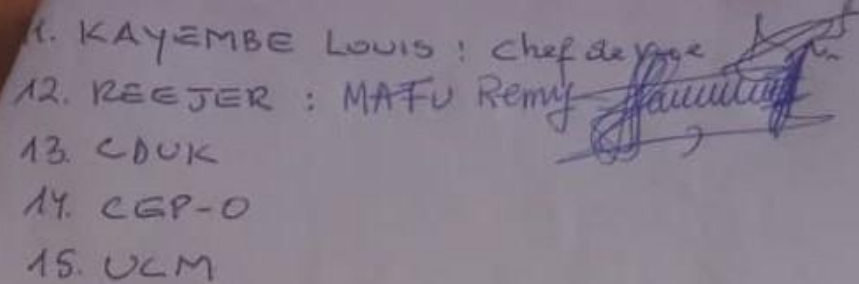 11. KAYEMBE LOUIS : chef de
12. REEJER : MAFU Remy
13. CDUK
14. CGP-O
15. UCM